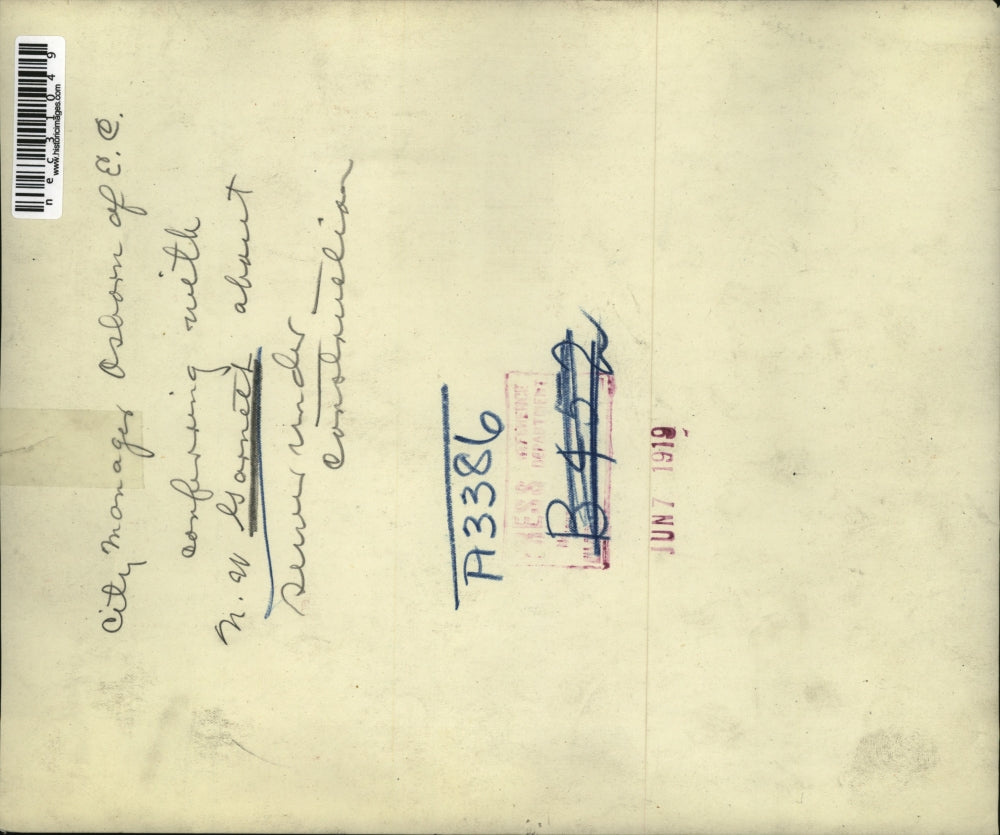 City Manager Osborn of E. C.
conferring with
N. W Garnett about
sewer under
construction
A3386
REFERENCE
DEPARTMENT
JUN 7 1919
nec31049
www.historicimages.com